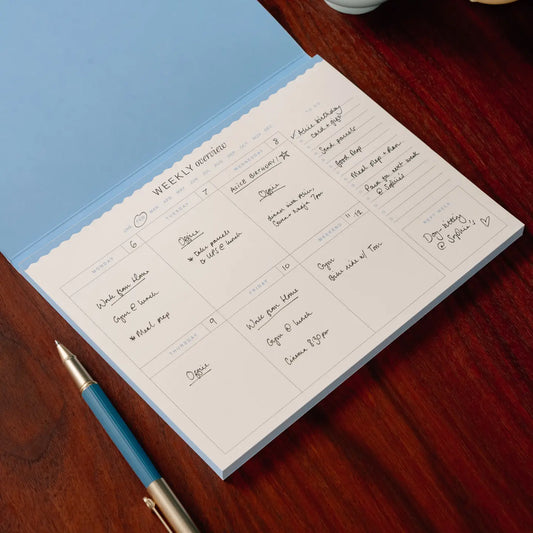 WEEKLY overview
JAN FEB MAR APR MAY JUN JUL AUG SEP OCT NOV DEC
MONDAY 6
Work from Home
Gym @ lunch
* Meal prep
TUESDAY 7
Office
* Take parcels
to UPS @ lunch
WEDNESDAY 8
ALICE BIRTHDAY!
Office
Dinner with Alice,
7pm
THURSDAY 9
Office
FRIDAY 10
Work from Home
Gym @ lunch
Cinema 8.30pm
WEEKEND 11-12
Gym
Bike ride w/ Tom
TO DO
✓ Alice birthday
card + gift
Send parcels
Food shop
Meal Prep + Plan
for next week
@ Sophie's
NEXT WEEK
Dog sitting
@ Sophie's ♡